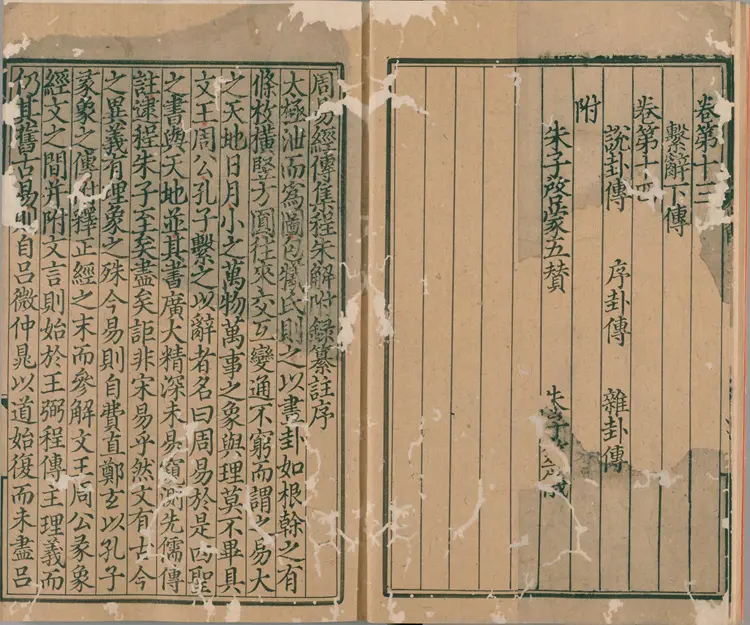 卷第十三
繫辭下傳
卷第十四
說卦傳 序卦傳 雜卦傳
附
朱子啓蒙五賛 朱子
周易經傳集程朱解附録纂註序
太極泄而爲圖包犧氏則之以畫卦如根榦之有
條枚横竪方圓往來交互變通不窮而謂之易大
之天地日月小之萬物萬事之象與理莫不畢具
文王周公孔子繫之以辭者名曰周易於是四聖
之書與天地並其書廣大精深未易窺測先儒傳
註逮程朱子至矣盡矣詎非宋易乎然文有古今
之異義有理象之殊今易則自費直鄭玄以孔子
彖象之傳附釋正經之末而參解文王周公彖象
經文之間并附文言則始於王弼程傳主理義而
仍其舊古易則自吕微仲晁以道始復而未盡吕